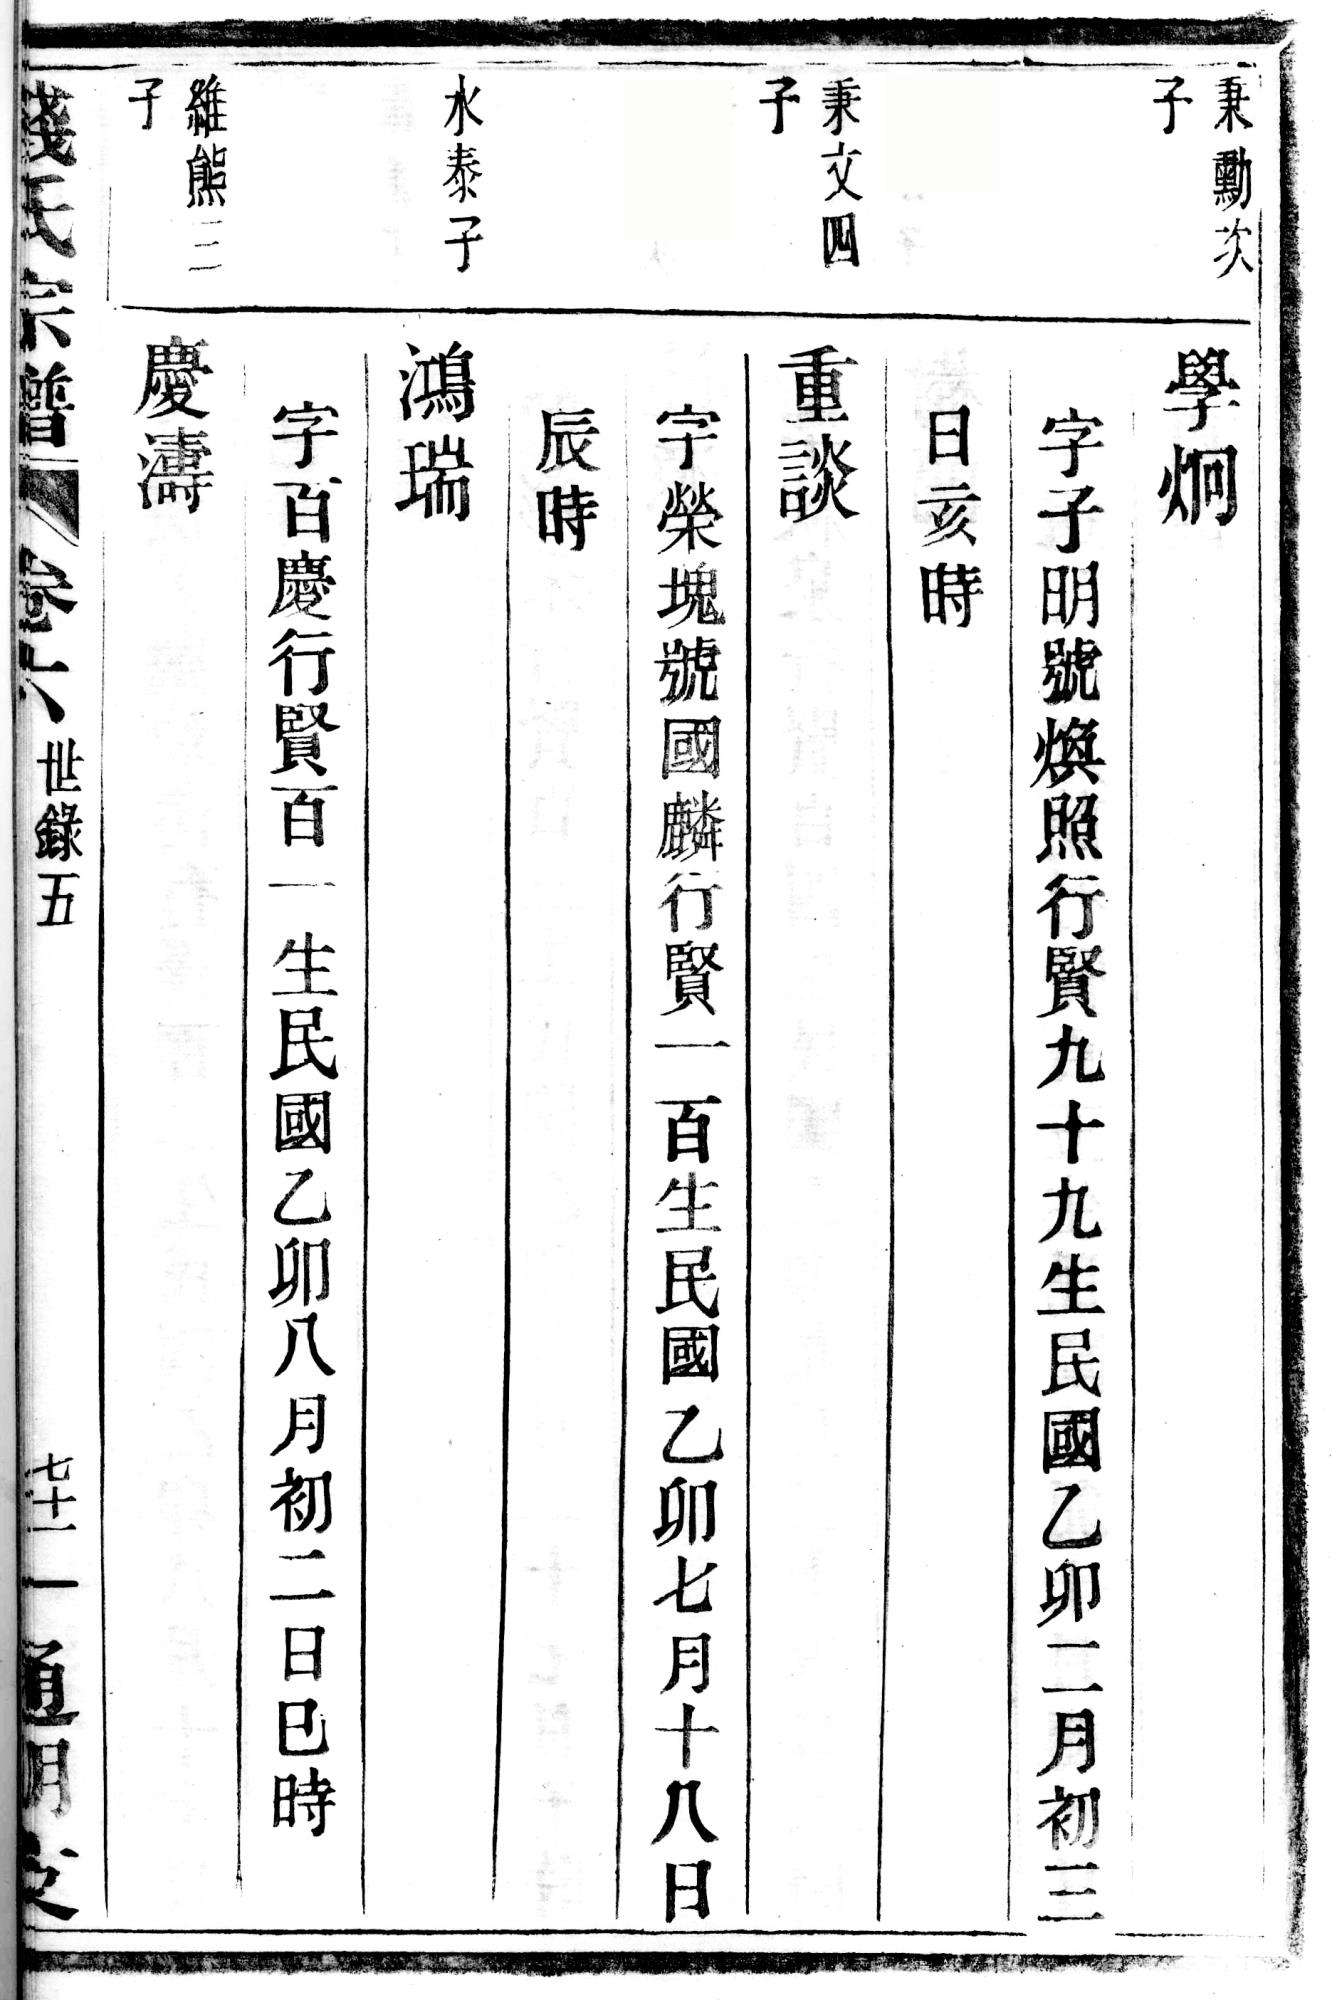 秉勳次
子
學炯
字子明號煥照行賢九十九生民國乙卯二月初三
日亥時
秉文四
子
重談
字榮塊號國麟行賢一百生民國乙卯七月十八日
辰時
水泰子
鴻瑞
字百慶行賢百一生民國乙卯八月初二日巳時
維熊三
子
慶濤
錢氏宗譜
卷六
世錄五
七十一
通明支